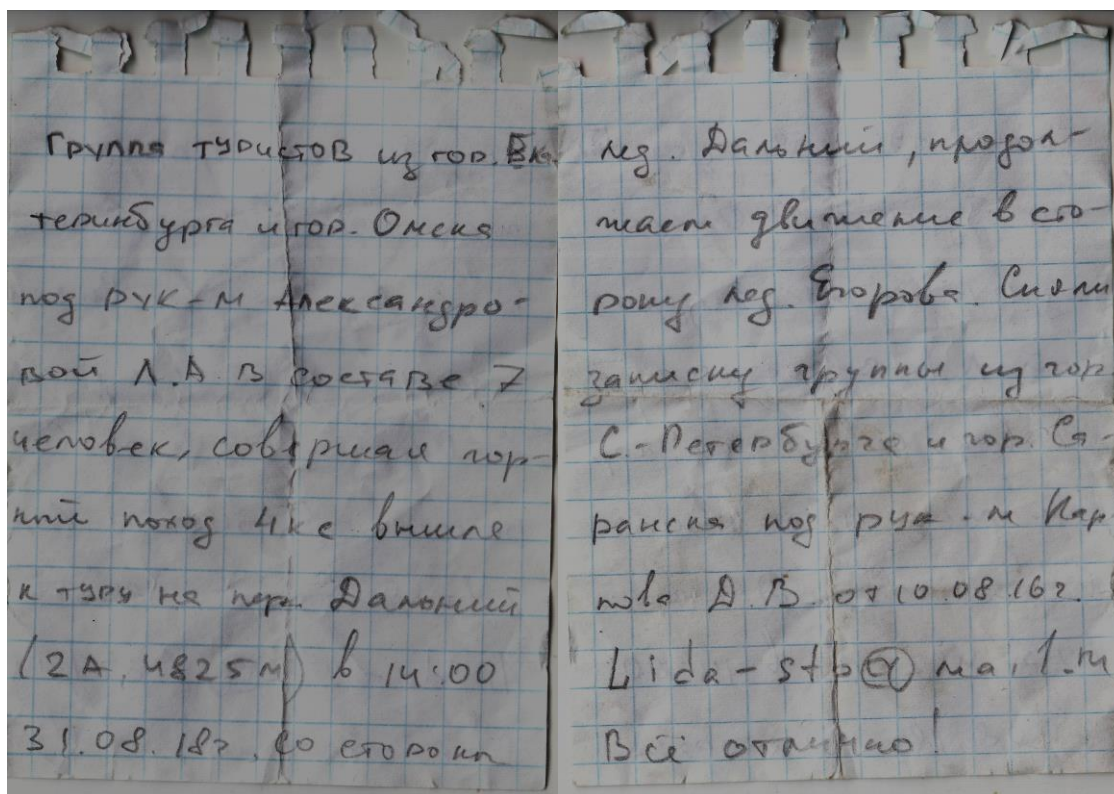 Группа туристов из гор. Ека
теринбурга и гор. Омска
под рук-м Александро-
вой Л.А в составе 7
человек, совершая гор-
ный поход 4кс вышла
к туру на пер. Дальний
(2А, 4825м) в 14:00
31.08.18г. со стороны
лед. Дальний, продол-
жаем движение в сто-
рону лед. Егорова. Сняли
записку группы из гор
С.-Петербурга и гор. Са-
ранска под рук-м Кар
пова Д.В. от 10.08.16г.
Lida-stp@mail.ru
Всё отлично!